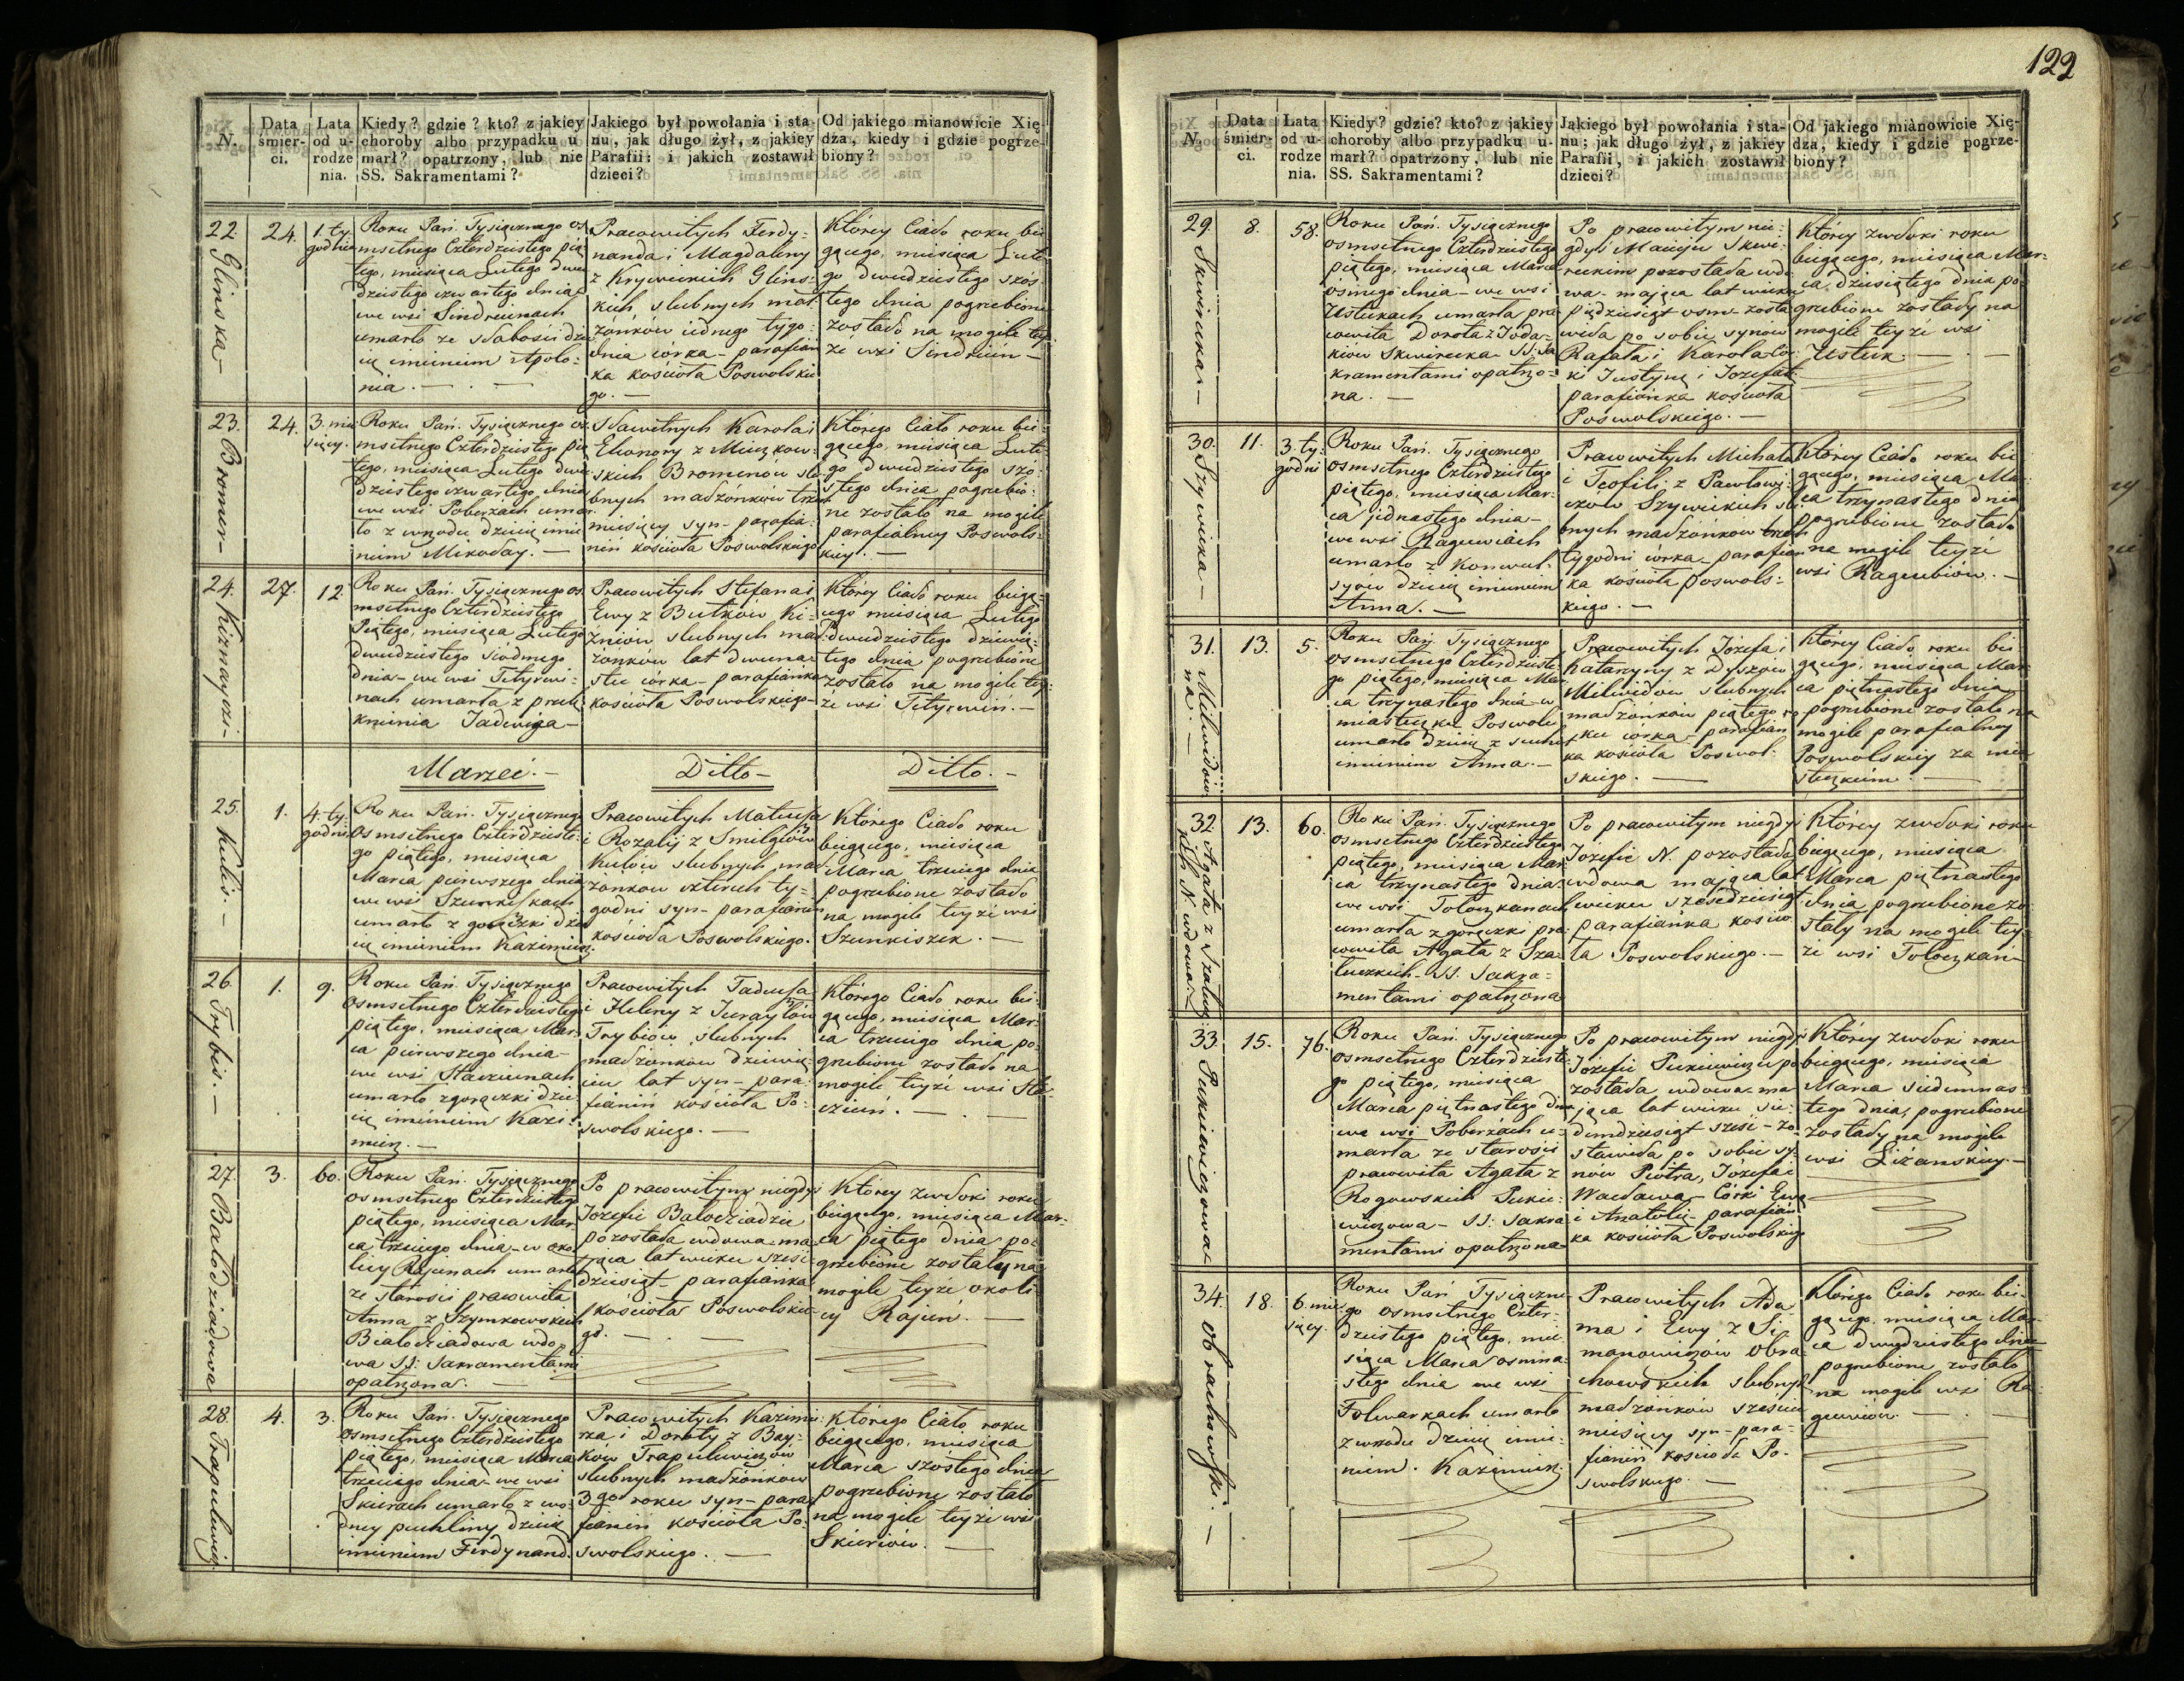 122
N.
Data śmier- ci.
Lata od u- rodze nia.
Kiedy? gdzie? kto? z jakiey choroby albo przypadku u marł? opatrzony, lub nie SS. Sakramentami?
Jakiego był powołania i sta- nu, jak długo żył, z jakiey Parafii: i jakich zostawił dzieci?
Od jakiego mianowicie Xię- dza, kiedy i gdzie pogrze- biony?
22
Glinska
24.
1. ty
godnia
Roku Pań. Tysiącznego os
msetnego Czterdziestego pią
tego, miesiąca Lutego dwu
dziestego czwartego dnia
we wsi Sindreunach
umarło ze słabości dzie
cię imieniem Apolo:
nia. —
Pracowitych Ferdy:
nanda i Magdaleny
z Krywickich Glins:
kich, slubnych mał:
żonków iednego tygo:
dnia córka — parafian
ka kościoła Poswolskie
go. —
Którey Ciało roku bie
gącego, miesiąca Lute
go dwudziestego szós
tego dnia pogrzebione
zostało na mogile tey
że wsi Sindriun —
23.
Bromer
24.
3. mie
sięcy.
Roku Pań. Tysiącznego os
msetnego Czterdziestego pią
tego, miesiąca Lutego dwu
dziestego czwartego dnia
we wsi Poberżach umar
ło z wrzodu dziecię imie
niem Mikołay. —
Sławetnych Karola i
Eleonory z Mieczkow:
skich Bromerów slu
bnych małżonków trzech
miesięcy syn — parafia:
nin kościoła Poswolskiego
Którego Ciało roku bie
gącego, miesiąca Lute
go dwudziestego szo:
stego dnia pogrzebio:
ne zostało na mogile
parafialney Poswols:
kiey. —
24.
27.
12
Roku Pań. Tysiącznego os
msetnego Czterdziestego
Piątego, miesiąca Lutego
dwudziestego siódmego
dnia — we wsi Tetyrwi:
nach umarła z przelę
knienia Jadwiga —
Pracowitych Stefana i
Ewy z Butków Ki:
źniów slubnych mał:
żonków lat dwuna:
stu córka — parafianka
kościoła Poswolskiego —
Którey Ciało roku biegą:
cego miesiąca Lutego
dwudziestego dziewią:
tego dnia pogrzebione
zostało na mogile tey:
że wsi Tetyrwin. —
Marzec. —
Ditto —
Ditto. —
25.
Kulis. —
1.
4. ty
godni
Roku Pań. Tysiącznego
Osmsetnego Czterdzieste:
go piątego, miesiąca
Marca pierwszego dnia
we wsi Szunkiszkach
umarło z gorączki dzie
cię imieniem Kazimierz
Pracowitych Mateusza
i Rozalij z Smilgiów
Kulów slubnych mał
żonkow czterech ty:
godni syn — parafianin
kościoła Poswolskiego.
Którego Ciało roku
biegącego, miesiąca
Marca trzeciego dnia
pogrzebione zostało
na mogile teyże wsi
Szunkiszek. —
26
Trybis. —
1.
9.
Roku Pań. Tysiącznego
Osmsetnego Czterdziestego
piątego, miesiąca Mar:
ca pierwszego dnia —
we wsi Stacziunach
umarło z gorączki dzie
cię imieniem Kazi:
mierz. —
Pracowitych Tadeusza
i Heleny z Juraytów
Trybiów slubnych
małżonkow dziewię:
ciu lat syn — para:
fianin kościoła Po:
swolskiego. —
Którego Ciało roku bie:
gącego, miesiąca Mar:
ca trzeciego dnia po:
grzebione zostało na
mogile teyże wsi Sta
cziuń. —
27.
Bałodziadowa
3.
60.
Roku Pań. Tysiącznego
osmsetnego Czterdziestego
piątego, miesiąca Mar
ca trzeciego dnia — w oko
licy Rajunach umarła
ze starości pracowita
Anna z Szymkowskich
Białodziadowa wdo:
wa SS: Sakramentami
opatrzona. —
Po pracowitym niegdyś
Jozefie Bałodziadzie
pozostała wdowa ma:
jąca lat wieku sześć
dziesiąt — parafianka
kościoła Poswolskie:
go. —
Którey zwłoki roku
biegącego, miesiąca Mar:
ca piątego dnia po:
grzebione zostały na
mogile teyże okoli:
cy Rajuń. —
28.
4.
3.
Roku Pań. Tysiącznego
osmsetnego Czterdziestego
piątego, miesiąca Marca
trzeciego dnia — we wsi
Skierach umarło z wo:
dney puchliny dziecię
imieniem Ferdynand.
Pracowitych Kazimie:
rza i Doroty z Bay:
ków Trapulewiczów
slubnych małżonkow
3go roku syn — para
fianin kościoła Po:
swolskiego. —
Którego Ciało roku
biegącego, miesiąca
Marca szóstego dnia
pogrzebione zostało
na mogile teyże wsi
Skieriów. —
N.
Data śmier- ci.
Lata od u- rodze nia.
Kiedy? gdzie? kto? z jakiey choroby albo przypadku u- marł? opatrzony, lub nie SS. Sakramentami?
Jakiego był powołania i sta- nu; jak długo żył, z jakiey Parafii, i jakich zostawił dzieci?
Od jakiego mianowicie Xię- dza, kiedy i gdzie pogrze- biony?
29.
Skwirecka —
8.
58.
Roku Pań. Tysiącznego
osmsetnego Czterdziestego
piątego, miesiąca Marca
ósmego dnia — we wsi
Ustukach umarła pra
cowita Dorota z Joda:
kiów Skwirecka — SS: Sa
kramentami opatrzo:
na. —
Po pracowitym nie:
gdyś Macieju Skwi:
reckim pozostała wdo
wa — mająca lat wieku
pięćdziesiąt osm — zosta
wiła po sobie synów
Rafała i Karola Cór:
ki Justynę i Jozefatę
parafianka kościoła
Poswolskiego. —
Którey zwłoki roku
biegącego, miesiąca Mar:
ca, dziesiątego dnia po
grzebione zostały na
mogile teyże wsi
Ustuk. —
30.
Szywicka —
11.
3. ty:
godni
Roku Pań. Tysiącznego
osmsetnego Czterdziestego
piątego, miesiąca Mar:
ca jednastego dnia —
we wsi Ragiewciach
umarło z Konwul:
syow dziecię imieniem
Anna. —
Pracowitych Michała
i Teofili z Pawłowi:
czów Szywickich slu:
bnych małżonkow trzech
tygodni córka — parafian
ka kościoła Poswols:
kiego. —
Którey Ciało roku bie
gącego, miesiąca Ma:
rca trzynastego dnia
pogrzebione zostało
na mogile teyże
wsi Ragiewciów. —
31.
13.
5.
Roku Pań. Tysiącznego
osmsetnego Czterdzieste:
go piątego, miesiąca Mar
ca trzynastego dnia — w
miasteczku Poswolu
umarło dziecię z suchot
imieniem Anna. —
Pracowitych Józefa i
Katarzyny z Dyszów
Milwidów slubnych
małżonków piątego ro
ku córka — parafian
ka kościoła Poswol:
skiego. —
Którey Ciało roku bie
gącego, miesiąca Mar
ca piętnastego dnia
pogrzebione zostało na
mogile parafialney
Poswolskiey za mia
steczkiem. —
32.
13.
60.
Roku Pań. Tysiącznego
osmsetnego Czterdziestego
piątego, miesiąca Mar
ca trzynastego dnia
we wsi Toloczkanach
umarła z gorączki pra:
cowita Agata z Sza:
tuczkich — SS. Sakra:
mentami opatrzona
Po pracowitym niegdyś
Józefie N. pozostała
wdowa mająca lat
wieku sześćdziesiąt
parafianka kościo
ła Poswolskiego. —
Którey zwłoki roku
biegącego, miesiąca
Marca piętnastego
dnia pogrzebione zo
stały na mogile tey
że wsi Toloczkan —
33.
Pukiewiczowa
15.
76.
Roku Pań. Tysiącznego
osmsetnego Czterdzieste
go piątego, miesiąca
Marca piętnastego dnia
we wsi Poberżach u:
marła ze starości
pracowita Agata z
Rogowskich Pukie:
wiczowa — SS: Sakra
mentami opatrzona
Po pracowitym niegdyś
Józefie Pukiewiczu po
została wdowa — ma
jąca lat wieku sie:
demdziesiąt sześć — zo:
stawiła po sobie sy:
nów Piotra, Józefa i
Wacława — Córki Ewę
i Anatolię — parafian:
ka kościoła Poswolskiego
Którey zwłoki roku
biegącego, miesiąca
Marca siedemnas
tego dnia, pogrzebione
zostały na mogile
wsi Liżanskiey. —
34.
Obrachowski. —
18.
6. mie
sięcy.
Roku Pań Tysiączne
go osmsetnego Czter:
dziestego piątego, mie
siąca Marca osmna:
stego dnia we wsi
Folwarkach umarło
z wrzodu dziecię imie:
niem. Kazimierz.
Pracowitych Ada
ma i Ewy z Si
manowiczów Obra
chowskich slubnych
małżonkow sześciu
miesięcy syn — para:
fianin kościoła Po:
swolskiego. —
Którego Ciało roku bie:
gącego, miesiąca Mar:
ca dwudziestego dnia
pogrzebione zostało
na mogile wsi Ra
giewciów. —